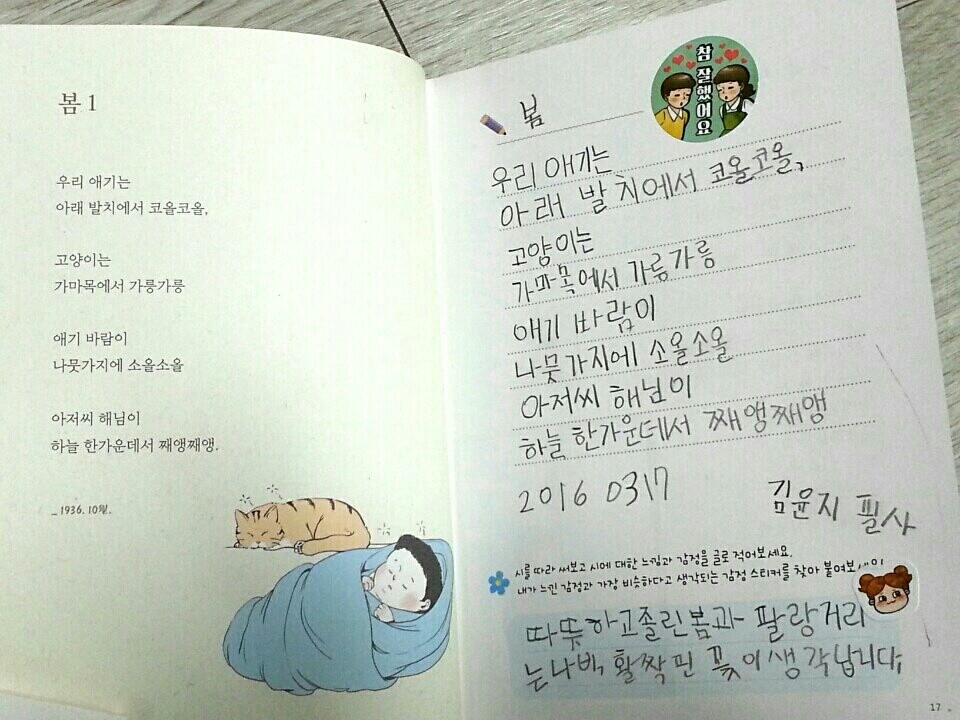 봄 1
우리 애기는
아래 발치에서 코올코올,
고양이는
가마목에서 가릉가릉
애기 바람이
나뭇가지에 소올소올
아저씨 해님이
하늘 한가운데서 째앵째앵.
_ 1936. 10월.
참 잘했어요
봄
우리 애기는
아래 발치에서 코올코올,
고양이는
가마목에서 가릉가릉
애기 바람이
나뭇가지에 소올소올
아저씨 해님이
하늘 한가운데서 째앵째앵
2016 0317 김윤지 필사
시를 따라 써보고 시에 대한 느낌과 감정을 글로 적어보세요.
내가 느낀 감정과 가장 비슷하다고 생각되는 감정 스티커를 찾아
따뜻하고졸린봄과 팔랑거리
는나비, 활짝 핀 꽃이생각납니다
17